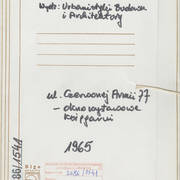 Wydz. Urbanistyki Budown.
i Architektury
ul. Czerwonej Armii 77
– okno wystawowe
księgarni
1965
86/1541
2686/1541